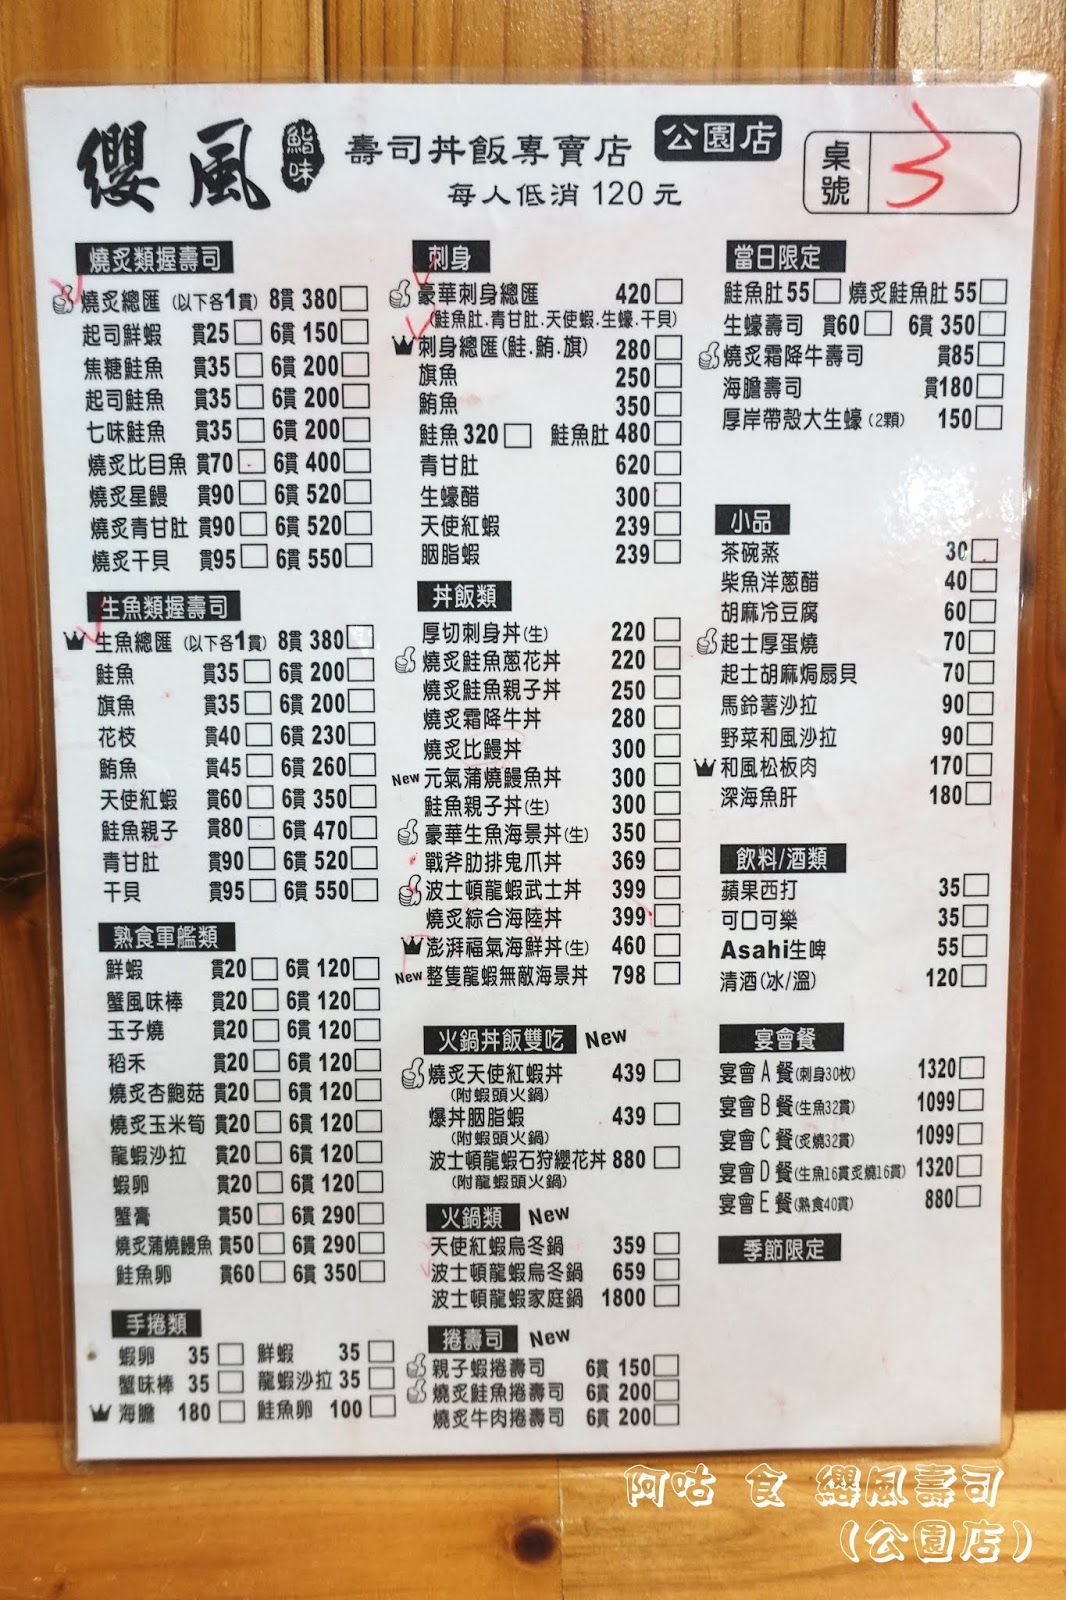 纓風 鮨味 壽司丼飯專賣店 公園店
每人低消 120 元
桌號 3
燒炙類握壽司
燒炙總匯 (以下各1貫) 8貫 380
起司鮮蝦 貫25 6貫 150
焦糖鮭魚 貫35 6貫 200
起司鮭魚 貫35 6貫 200
七味鮭魚 貫35 6貫 200
燒炙比目魚 貫70 6貫 400
燒炙星鰻 貫90 6貫 520
燒炙青甘肚 貫90 6貫 520
燒炙干貝 貫95 6貫 550
生魚類握壽司
生魚總匯 (以下各1貫) 8貫 380
鮭魚 貫35 6貫 200
旗魚 貫35 6貫 200
花枝 貫40 6貫 230
鮪魚 貫45 6貫 260
天使紅蝦 貫60 6貫 350
鮭魚親子 貫80 6貫 470
青甘肚 貫90 6貫 520
干貝 貫95 6貫 550
熟食軍艦類
鮮蝦 貫20 6貫 120
蟹風味棒 貫20 6貫 120
玉子燒 貫20 6貫 120
稻禾 貫20 6貫 120
燒炙杏鮑菇 貫20 6貫 120
燒炙玉米筍 貫20 6貫 120
龍蝦沙拉 貫20 6貫 120
蝦卵 貫20 6貫 120
蟹膏 貫50 6貫 290
燒炙蒲燒鰻魚 貫50 6貫 290
鮭魚卵 貫60 6貫 350
手捲類
蝦卵 35 鮮蝦 35
蟹味棒 35 龍蝦沙拉 35
海膽 180 鮭魚卵 100
刺身
豪華刺身總匯 420
(鮭魚肚.青甘肚.天使蝦.生蠔.干貝)
刺身總匯(鮭.鮪.旗) 280
旗魚 250
鮪魚 350
鮭魚 320 鮭魚肚 480
青甘肚 620
生蠔醋 300
天使紅蝦 239
胭脂蝦 239
丼飯類
厚切刺身丼(生) 220
燒炙鮭魚蔥花丼 220
燒炙鮭魚親子丼 250
燒炙霜降牛丼 280
燒炙比鰻丼 300
New 元氣蒲燒鰻魚丼 300
鮭魚親子丼(生) 300
豪華生魚海景丼(生) 350
戰斧肋排鬼爪丼 369
波士頓龍蝦武士丼 399
燒炙綜合海陸丼 399
澎湃福氣海鮮丼(生) 460
New 整隻龍蝦無敵海景丼 798
火鍋丼飯雙吃 New
燒炙天使紅蝦丼 439
(附蝦頭火鍋)
爆丼胭脂蝦 439
(附蝦頭火鍋)
波士頓龍蝦石狩櫻花丼 880
(附龍蝦頭火鍋)
火鍋類 New
天使紅蝦烏冬鍋 359
波士頓龍蝦烏冬鍋 659
波士頓龍蝦家庭鍋 1800
捲壽司 New
親子蝦捲壽司 6貫 150
燒炙鮭魚捲壽司 6貫 200
燒炙牛肉捲壽司 6貫 200
當日限定
鮭魚肚 55 燒炙鮭魚肚 55
生蠔壽司 貫60 6貫 350
燒炙霜降牛壽司 貫85
海膽壽司 貫180
厚岸帶殼大生蠔(2顆) 150
小品
茶碗蒸 30
柴魚洋蔥醋 40
胡麻冷豆腐 60
起士厚蛋燒 70
起士胡麻焗扇貝 70
馬鈴薯沙拉 90
野菜和風沙拉 90
和風松板肉 170
深海魚肝 180
飲料/酒類
蘋果西打 35
可口可樂 35
Asahi生啤 55
清酒(冰/溫) 120
宴會餐
宴會A餐(刺身30枚) 1320
宴會B餐(生魚32貫) 1099
宴會C餐(炙燒32貫) 1099
宴會D餐(生魚16貫炙燒16貫) 1320
宴會E餐(熟食40貫) 880
季節限定
阿咕 食 纓風壽司
(公園店)